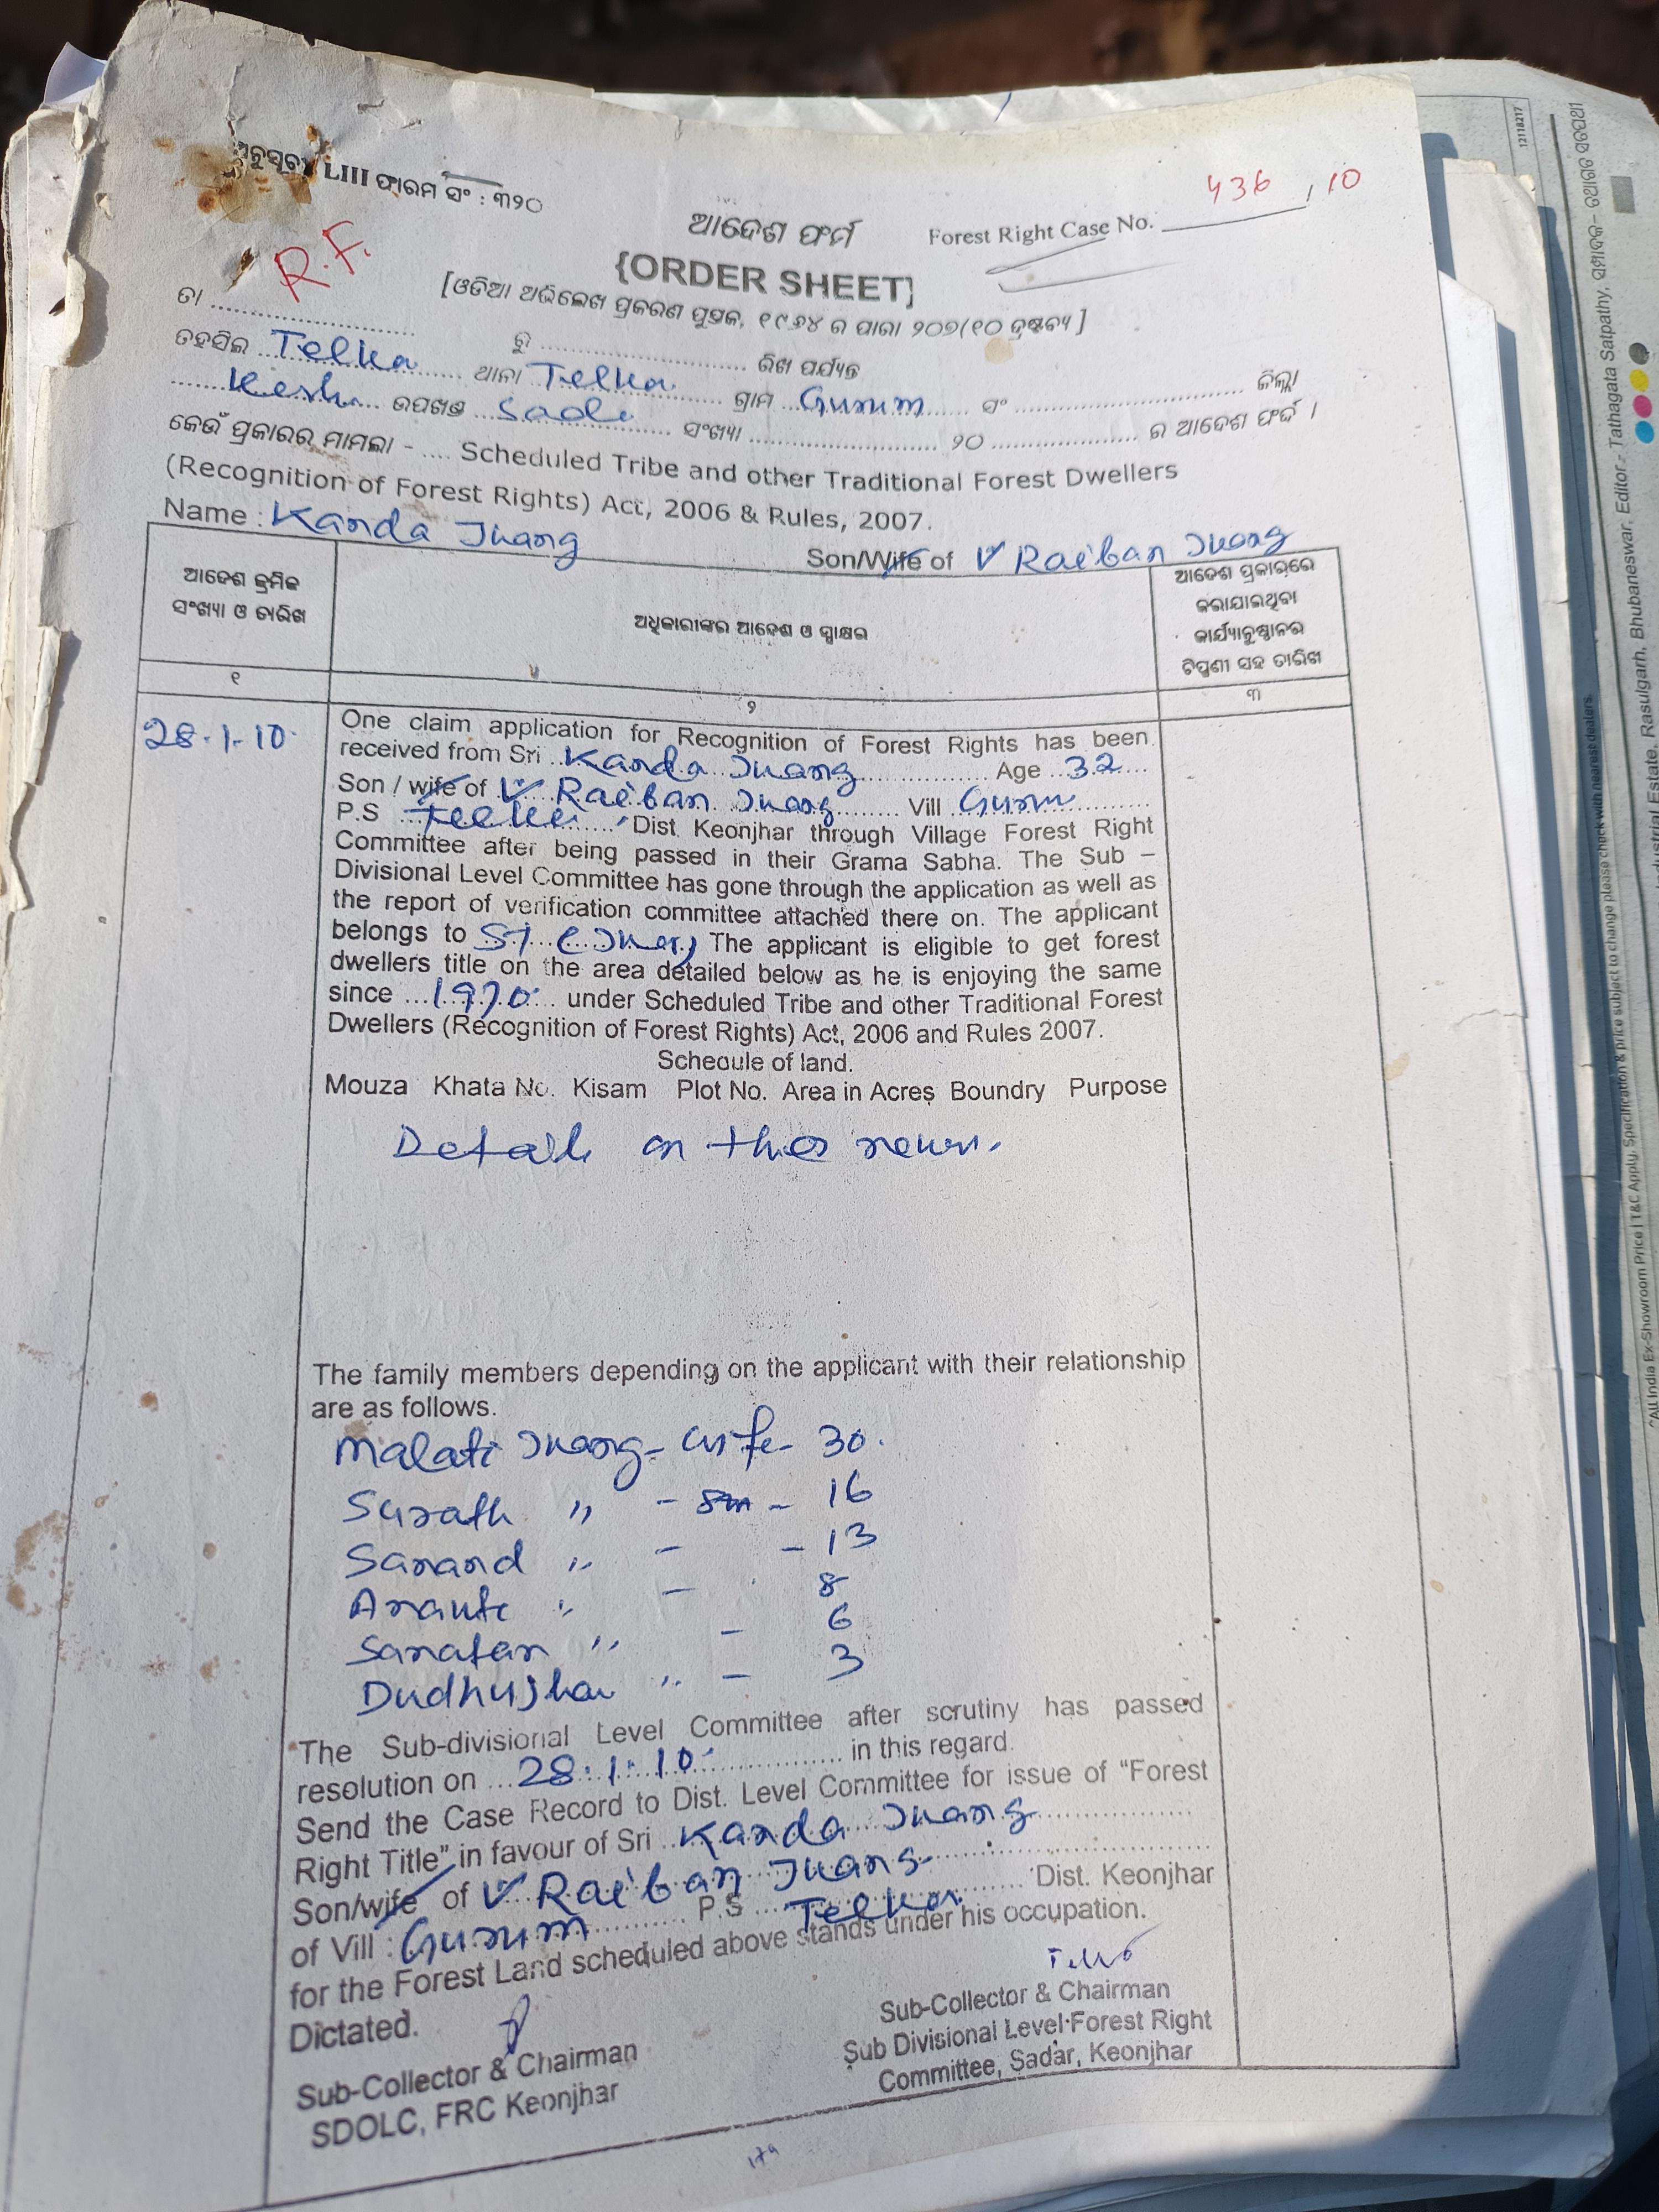 ଅନୁସୂଚୀ LIII ଫାରମ ସଂ : ୩୨୦
436 / 10
Forest Right Case No.
R.F.
ଆଦେଶ ଫର୍ମ
{ORDER SHEET}
[ଓଡିଆ ଅଭିଲେଖ ପ୍ରକରଣ ପୁସ୍ତକ, ୧୯୬୪ ର ପାରା ୨୦୭(୧୦ ଦ୍ରଷ୍ଟବ୍ୟ ]
ତା ........ ରୁ ........ ରିଖ ପର୍ଯ୍ୟନ୍ତ
ତହସିଲ Telkoi ଥାନା Telkoi ଗ୍ରାମ Gunum ସଂ ........ ଜିଲ୍ଲା
ଉପଖଣ୍ଡ Sadar ସଂଖ୍ୟା ........ ୨୦ ........ ର ଆଦେଶ ଫର୍ଦ୍ଦ ।
କେଉଁ ପ୍ରକାରର ମାମଲା - .... Scheduled Tribe and other Traditional Forest Dwellers
(Recognition of Forest Rights) Act, 2006 & Rules, 2007.
Name : Kanda Juang Son/Wife of Raiban Juang
ଆଦେଶ କ୍ରମିକ
ସଂଖ୍ୟା ଓ ତାରିଖ
ଅଧିକାରୀଙ୍କର ଆଦେଶ ଓ ସ୍ୱାକ୍ଷର
ଆଦେଶ ପ୍ରକାରରେ
କରାଯାଇଥିବା
କାର୍ଯ୍ୟାନୁଷ୍ଠାନର
ଟିପ୍ପଣୀ ସହ ତାରିଖ
୧
୨
୩
28.1.10.
One claim application for Recognition of Forest Rights has been
received from Sri Kanda Juang Age 32
Son / wife of Raiban Juang Vill Gunum
P.S Telkoi Dist. Keonjhar through Village Forest Right
Committee after being passed in their Grama Sabha. The Sub –
Divisional Level Committee has gone through the application as well as
the report of verification committee attached there on. The applicant
belongs to ST (Juang) The applicant is eligible to get forest
dwellers title on the area detailed below as he is enjoying the same
since 1970 under Scheduled Tribe and other Traditional Forest
Dwellers (Recognition of Forest Rights) Act, 2006 and Rules 2007.
Schedule of land.
Mouza Khata No. Kisam Plot No. Area in Acres Boundry Purpose
Details on the
The family members depending on the applicant with their relationship
are as follows.
Malati Juang - wife - 30.
Surath " - son - 16
Sanand " - - 13
" - 8
Sanatan " - 6
" - 3
The Sub-divisional Level Committee after scrutiny has passed
resolution on 28.1.10. in this regard.
Send the Case Record to Dist. Level Committee for issue of “Forest
Right Title” in favour of Sri Kanda Juang
Son/wife of Raiban Juang
of Vill : Gunum P.S Telkoi Dist. Keonjhar
for the Forest Land scheduled above stands under his occupation.
Dictated.
Sub-Collector & Chairman
SDOLC, FRC Keonjhar
Sub-Collector & Chairman
Sub Divisional Level Forest Right
Committee, Sadar, Keonjhar
12118217
Industrial Estate, Rasulgarh, Bhubaneswar, Editor - Tathagata Satpathy,
*All India Ex-Showroom Price | T&C Apply. Specification & price subject to change please check with nearest dealers.